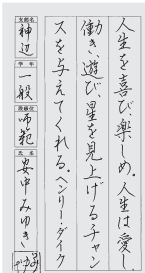 人生を喜び、楽しめ。人生は愛し、
働き、遊び、星を見上げるチャン
スを与えてくれる。ヘンリー・ダイク
支部名
神辺
学年
一般
段級位
師範
氏名
安中みゆき